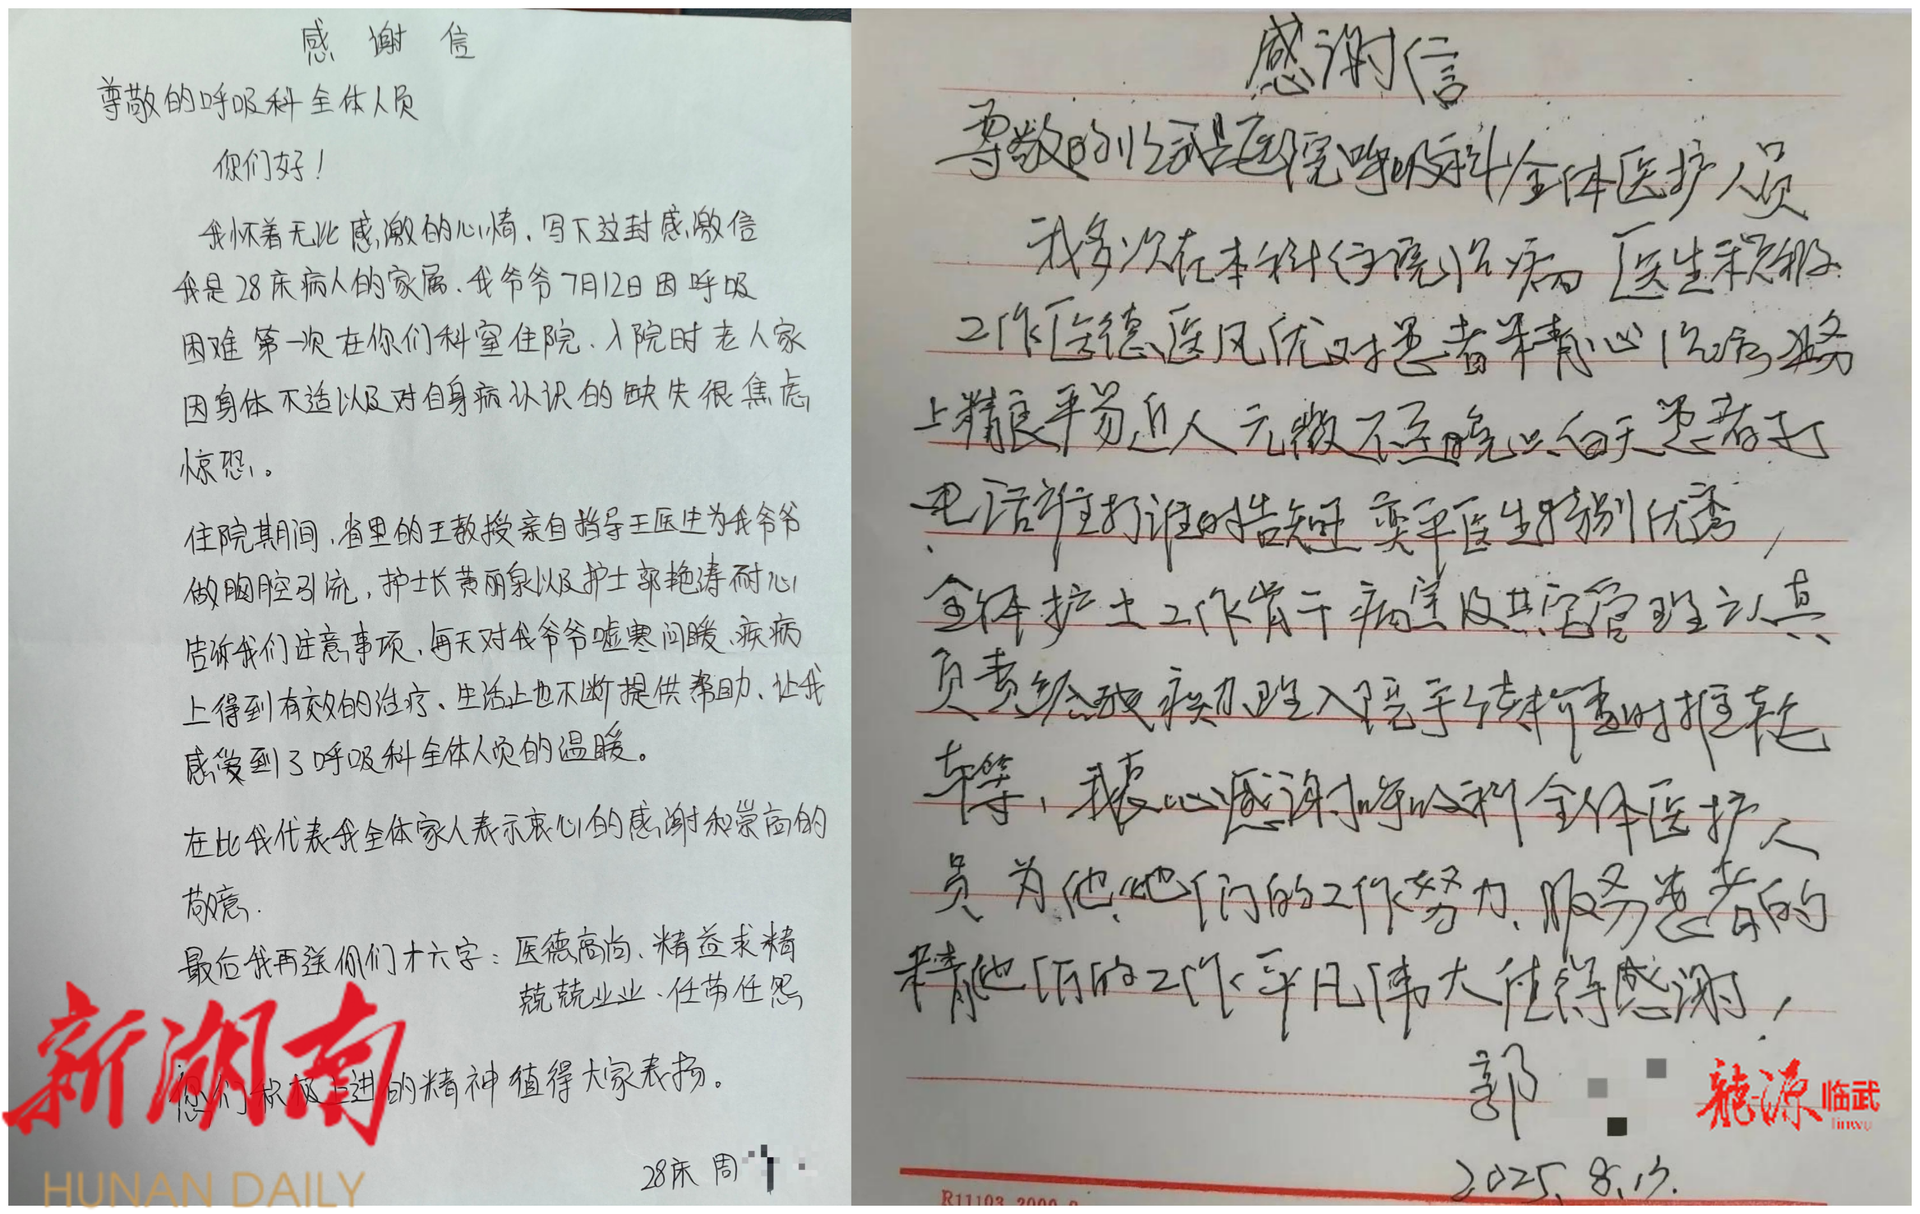 感谢信
尊敬的呼吸科全体人员
你们好！
我怀着无比感激的心情、写下这封感激信
我是28床病人的家属、我爷爷7月12日因呼吸
困难第一次在你们科室住院、入院时老人家
因身体不适以及对自身病认识的缺失很焦虑
惊恐。
住院期间，省里的王教授亲自指导王医生为我爷爷
做胸腔引流，护士长黄丽泉以及护士郭艳涛耐心
告诉我们注意事项，每天对我爷爷嘘寒问暖、疾病
上得到有效的治疗、生活上也不断提供帮助、让我
感受到了呼吸科全体人员的温暖。
在此我代表我全体家人表示衷心的感谢和崇高的
敬意.
最后我再送你们十六字：医德高尚、精益求精
兢兢业业、任劳任怨
您们积极上进的精神值得大家表扬。
28床 周
新湖南
HUNAN DAILY
感谢信
尊敬的临武县医院呼吸科全体医护人员
我多次在本科住院治病 医生积极
工作医德医风优对患者精心治病业务
上精良平易近人无微不至晚白天患者打
电话谁打谁时告知 奕平医生特别优秀，
全体护士工作肯干病室及其它管理认真
负责给我办理入院手续检查时推轮
车等，我衷心感谢呼吸科全体医护人
员为他她们的工作努力、服务患者的
精他们的工作平凡伟大值得感谢，
郭
2025.8.13.
龙源临武
linwu
R11103 2000